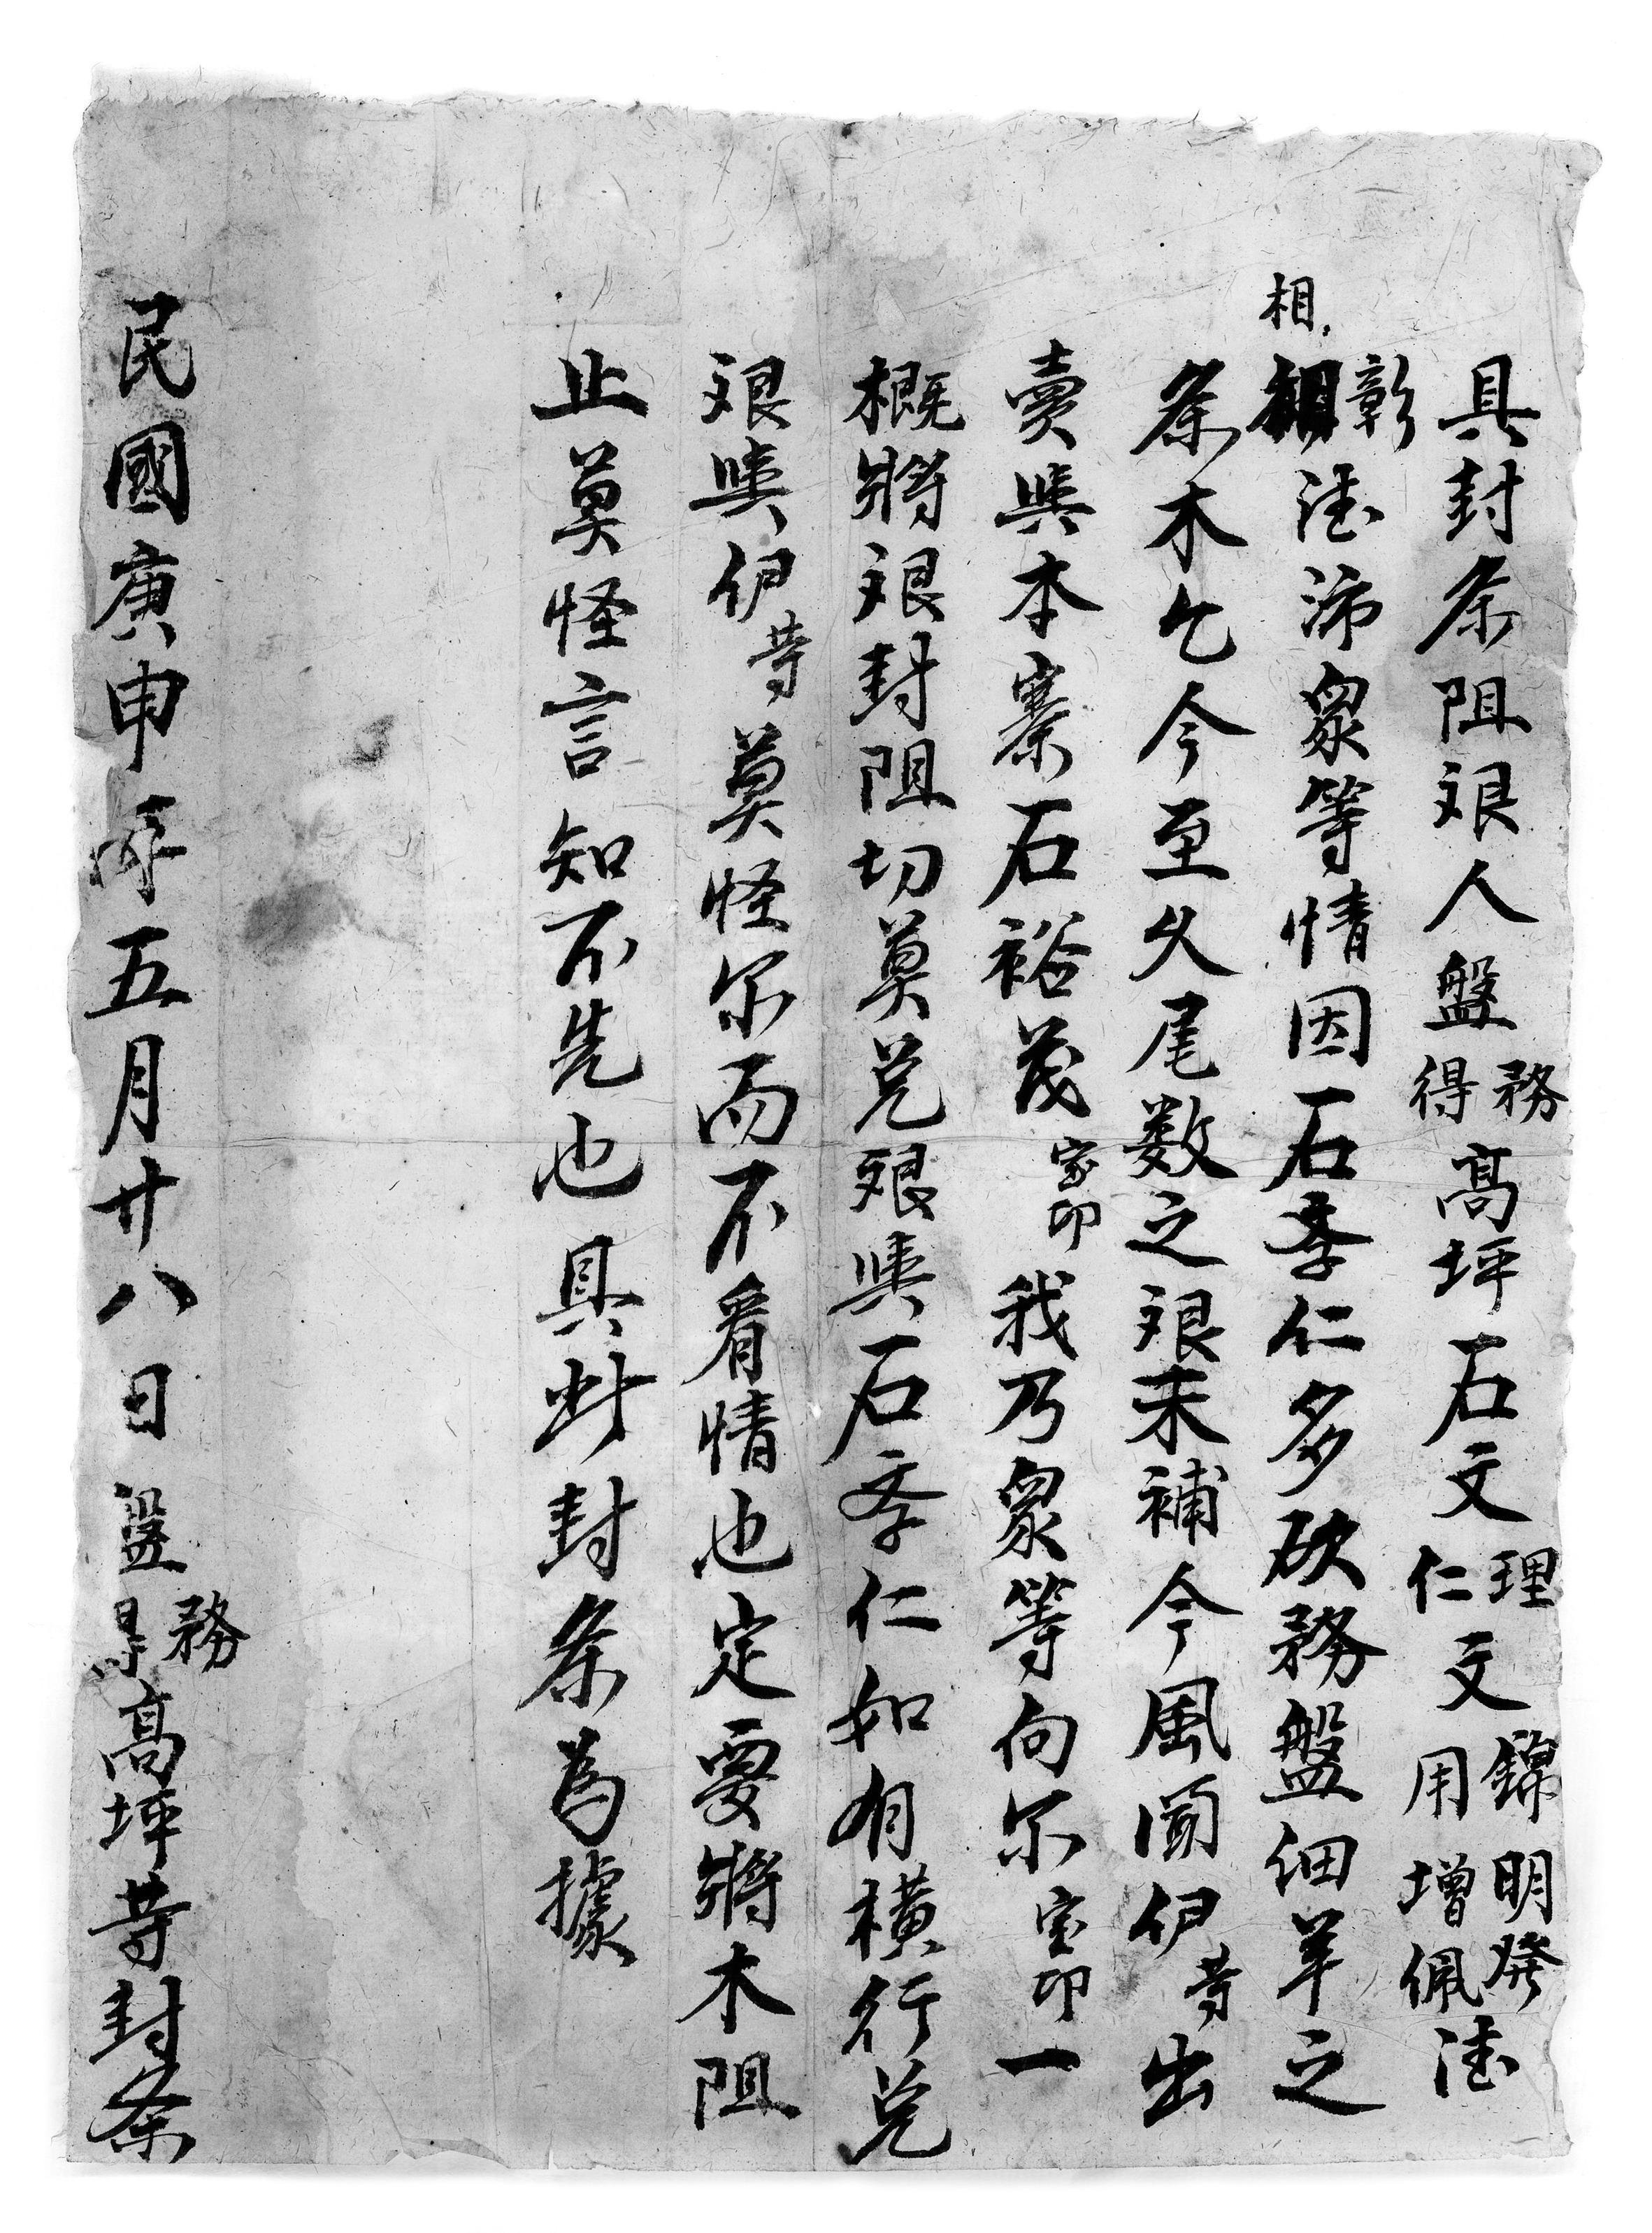 具封条阻艮人盤務得高坪石文理仁文錦用明增發佩德
彰相德沛眾等情因石孝仁多砍務盤细羊之
条木乞今至久尾数之艮未補今風聞伊等出
賣與本寨石裕茂宝印我乃眾等向尔宝印一
概將艮封阻切莫兑艮與石孝仁如有橫行兑
艮與伊等莫怪尔而不看情也定要將木阻
止莫怪言知不先也具此封条為據
民國庚申年五月廿八日盤務得高坪等封条